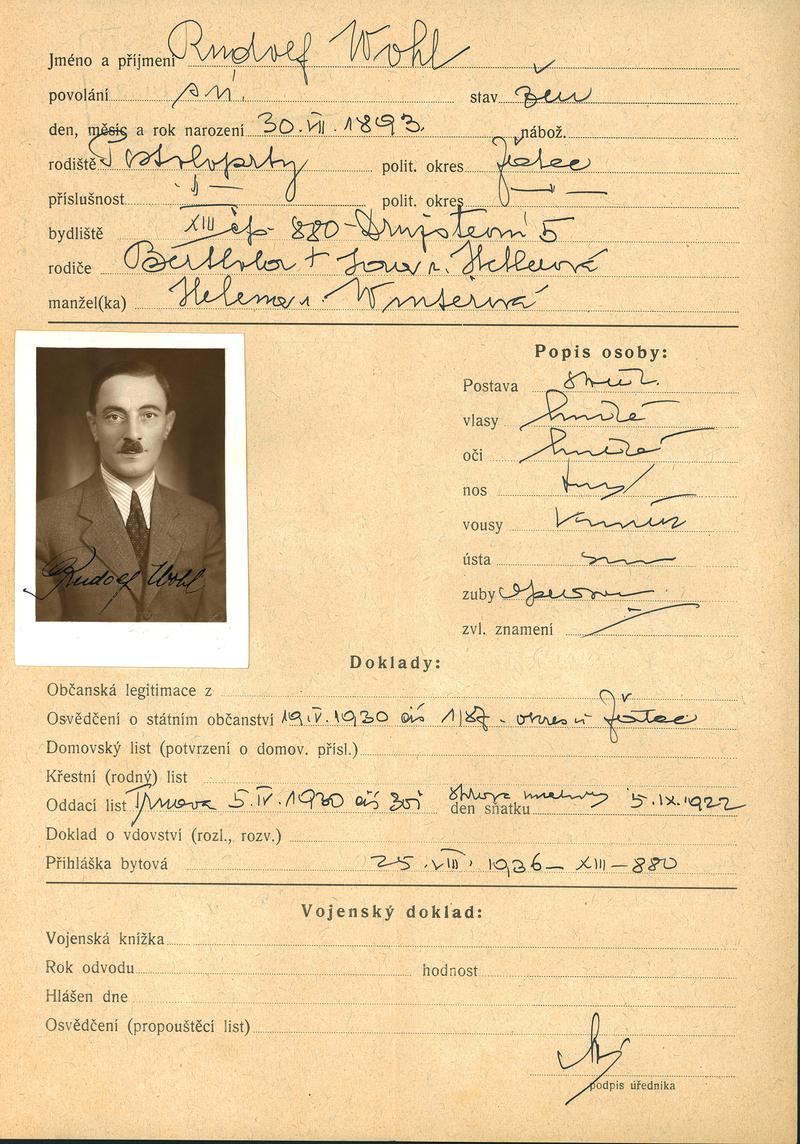 Jméno a příjmení Rudolf Wohl
povolání stav žen
den, měsíc a rok narození 30. VII. 1893. nábož.
rodiště Postoloprty polit. okres Žatec
příslušnost –"– polit. okres –"–
bydliště XIII čp. 880 - Družstevní 5
rodiče Berthold +
manžel(ka) Helena r. Winterová
Popis osoby:
Postava
vlasy hnědé
oči hnědé
nos
vousy
ústa
zuby
zvl. znamení
Rudolf Wohl
Doklady:
Občanská legitimace z
Osvědčení o státním občanství 19.IV.1930 čís 1187 - okres. ú Žatec
Domovský list (potvrzení o domov. přísl.)
Křestní (rodný) list
Oddací list Trnava 5.IV.1930 čís den sňatku 5.IX.1922
Doklad o vdovství (rozl., rozv.)
Přihláška bytová 25.VIII. 1936 - XIII - 880
Vojenský doklad:
Vojenská knížka
Rok odvodu hodnost
Hlášen dne
Osvědčení (propouštěcí list)
podpis úředníka